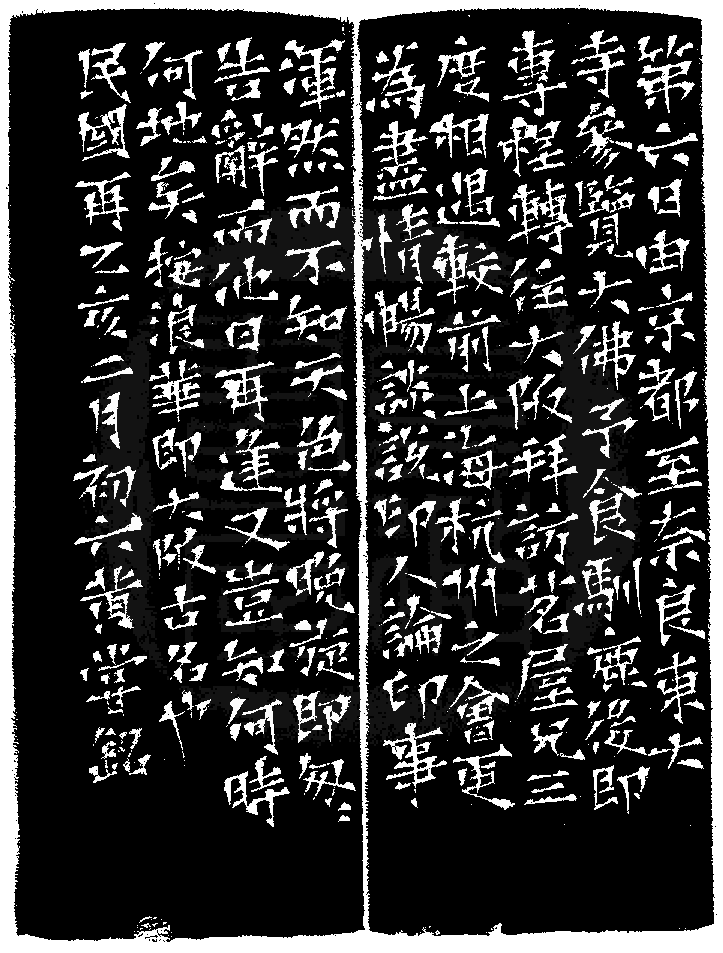 第六日由京都至奈良東大
寺參覽大佛予食馴鹿後即
專程轉往大阪拜訪茗屋兄三
度相遇較前上海杭州之會更
為盡情暢談說印人論印事
渾然而不知天色將晚旋即匆〻
告辭而他日再逢又豈知何時
何地矣按浪華即大阪古名也
民國再乙亥二月初六黃嘗銘